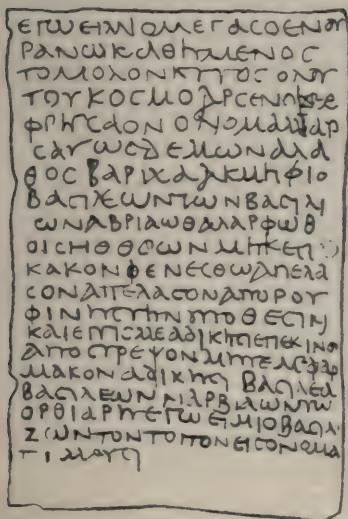 ΕΓΩΕΙΜΝΟΜΕΓΑϹΟΕΝΟΥ
ΡΑΝΩΚΑΘΗΜΕΝΟϹ
ΤΟΜΟΛΟΝΚΥΤΟϹΟΛΟΥ
ΤΟΥΚΟϹΜΟΑΡϹΕΝ
ΦΡΗϹΑΟΝΟΝΟΜΑ
ϹΑΓΩϹΔΕΜΩΝΑΓΑ
ΘΟϹΒΑΡΙΧΑΑΚΜΗΦΙΟ
ΒΑϹΙΛΕΩΝΤΩΝΒΑϹΙΛΙ
ΩΝΑΒΡΙΑΩΘΑΛΑΡΦΩΘ
ΟΙϹΗΘΘϹΩΝΜΗΚΕΤΙ
ΚΑΚΟΝΦΕΝΕϹΘΩΑΠΕΛΑ
ϹΟΝΑΠΕΛΑϹΟΝΑΠΟΡΟΥ
ΦΙΝΗϹΤΗΝΥΠΟΘΕϹΙΝ
ΚΑΙΕΠΙϹΜΕΑΔΙΚΗΕΠΕΚΙΝΟ
ΑΠΟϹΤΡΕΨΟΝΜΗΤΕΜΕΦΑΡ
ΜΑΚΟΝΑΔΙΚΗϹΙΒΑϹΙΛΕΑ
ΒΑϹΙΛΕΩΝΝΙΑΡΒ
ΟΡΘΙΑΡΗΕΓΩΕΙΜΙΟΒΑϹΙΛ
ΖΩΝΤΟΝΤΟΠΟΝΕΙϹΟΝΟΜΑ
ΤΙΜΟΥϹΙ